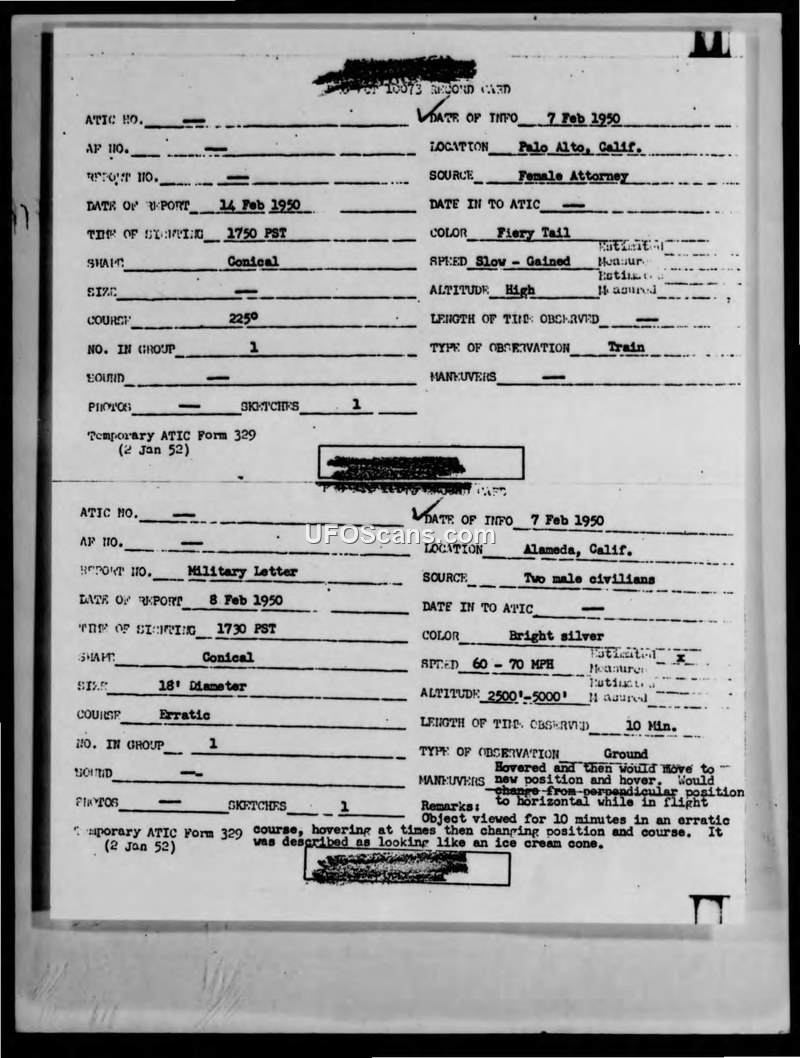 10073 RECORD CARD
ATIC NO. —
DATE OF INFO 7 Feb 1950
AF NO. —
LOCATION Palo Alto, Calif.
REPORT NO. —
SOURCE Female Attorney
DATE OF REPORT 14 Feb 1950
DATE IN TO ATIC —
TIME OF SIGHTING 1750 PST
COLOR Fiery Tail
SHAPE Conical
SPEED Slow - Gained Estimated Measur
SIZE —
ALTITUDE High Estimated Measured
COURSE 225°
LENGTH OF TIME OBSERVED —
NO. IN GROUP 1
TYPE OF OBSERVATION Train
SOUND —
MANEUVERS —
PHOTOS — SKETCHES 1
Temporary ATIC Form 329
(2 Jan 52)
CARD
ATIC NO. —
DATE OF INFO 7 Feb 1950
UFOScans.com
AF NO. —
LOCATION Alameda, Calif.
REPORT NO. Military Letter
SOURCE Two male civilians
DATE OF REPORT 8 Feb 1950
DATE IN TO ATIC —
TIME OF SIGHTING 1730 PST
COLOR Bright silver
SHAPE Conical
SPEED 60 - 70 MPH Estimated x Measured
SIZE 18' Diameter
ALTITUDE 2500'-5000' Estimated Measured
COURSE Erratic
LENGTH OF TIME OBSERVED 10 Min.
NO. IN GROUP 1
TYPE OF OBSERVATION Ground
SOUND —
MANEUVERS Hovered and then would move to
new position and hover. Would
change from perpendicular position
to horizontal while in flight
PHOTOS — SKETCHES 1
Remarks:
Object viewed for 10 minutes in an erratic
course, hovering at times then changing position and course. It
was described as looking like an ice cream cone.
Temporary ATIC Form 329
(2 Jan 52)